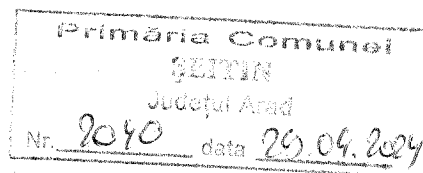 Primăria Comunei
ȘEITIN
Județul Arad
Nr. 2040 data 29.04.2024